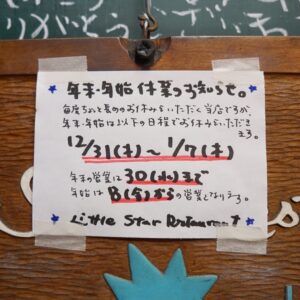 年末・年始休業のお知らせ。
毎度ちょっと長めのお休みをいただく当店ですが、
年末・年始は以下の日程でお休みいただき
ます。
12/31(木)〜1/7(木)
年末の営業は30(水)まで
年始は8(金)からの営業となります。
Little Star Restaurant